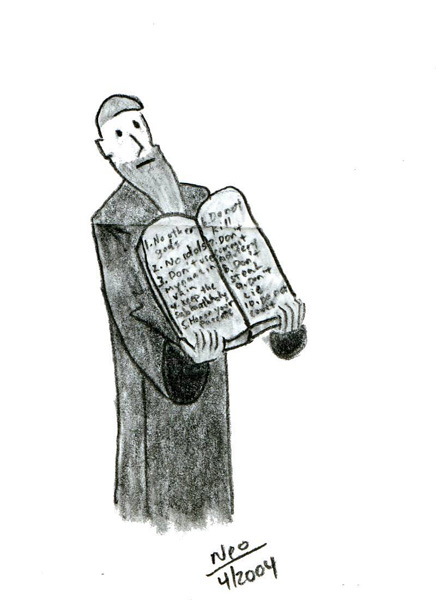 1. No other
gods
2. No idols
3. Don't use
my name in
vein
4. Keep the
Sabbath holy
5. Honor your
parents
6. Do not
Kill
7. Don't
commit
adultery
8. Don't
steal
9. Don't
Lie
10. Do not
covet
Neo
4/2004